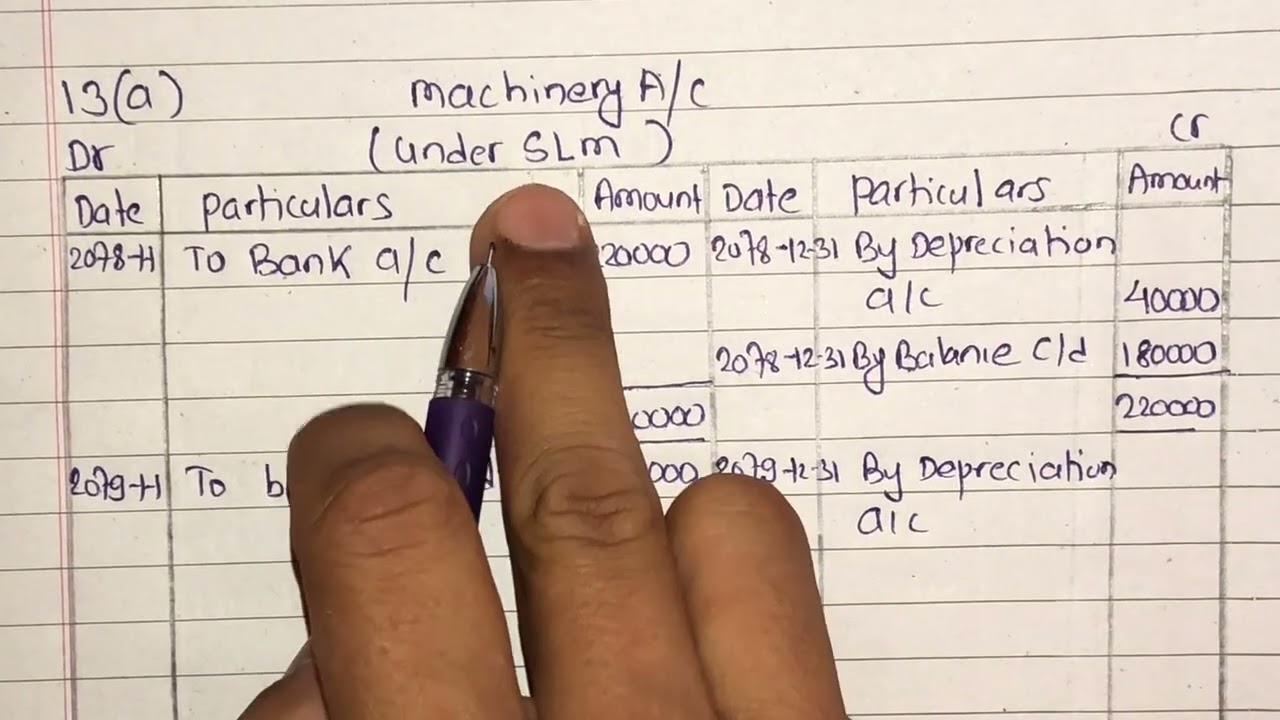 13(a) machinery A/c
Dr (under SLm) Cr
Date particulars Amount Date particulars Amount
2078-1-1 To Bank a/c 20000 2078-12-31 By Depreciation
a/c 40000
2078-12-31 By Balance C/d 180000
0000 220000
2079-1-1 To b 000 2079-12-31 By Depreciation
a/c